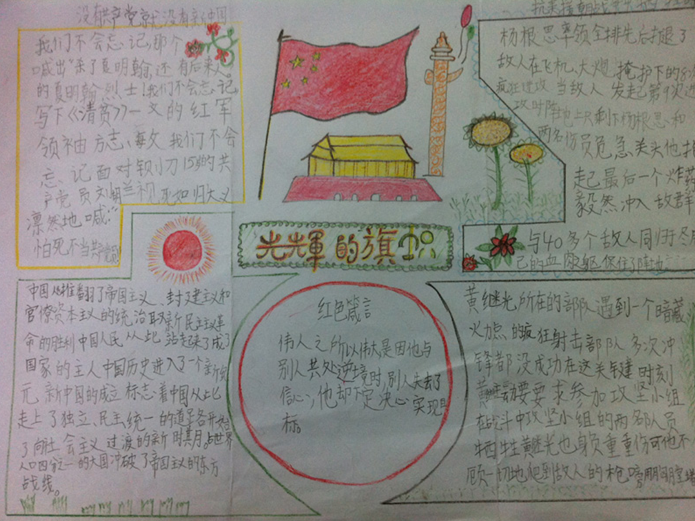 没有共产党就没有新中国
我们不会忘记,那个
喊出"杀了夏明翰,还有后来人"
的夏明翰烈士!我们不会忘记,
写下《清贫》一文的红军
领袖方志敏我们不会
忘记面对铡刀15岁的共
产党员刘胡兰视死如归大义
凛然地喊:"
怕死不当共产党
杨根思率领全排先后打退了
敌人在飞机、大炮掩护下的
疯狂进攻当敌人发起第9次进
攻时阵地上只剩下杨根思和
两名伤员危急关头他
起最后一个炸药
毅然冲入敌群
与40多个敌人同归于尽
光辉的旗帜
中国人民推翻了帝国主义、封建主义和
官僚资本主义的统治取新民主主义革
命的胜利中国人民从此站起来了成了
国家的主人中国历史进入了一个新纪
元新中国的成立标志着中国从此
走上了独立、民主、统一的道路开始
了向社会主义过渡的新时期占世界
人口四分之一的大国冲破了帝国主义的东方
战线。
红色箴言
伟人之所以伟大是因他与
别人共处逆境时,别人失去了
信心,他却下定决心实现目
标。
黄继光所在的部队遇到一个暗藏
火力点的疯狂射击部队多次冲
锋都没成功在这关键时刻
黄继光要求参加攻坚小组
战斗中攻坚小组的两名队员
牺牲黄继光也身负重伤可他不
顾一切地爬到敌人的枪口